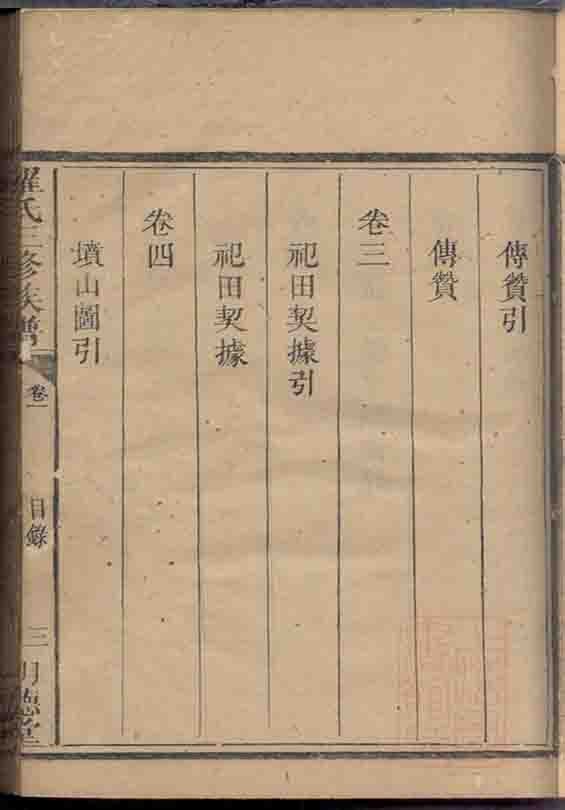 傳贊引
傳贊
卷三
祀田契據引
祀田契據
卷四
墳山圖引
羅氏三修族譜
卷一
目錄
三
明德堂